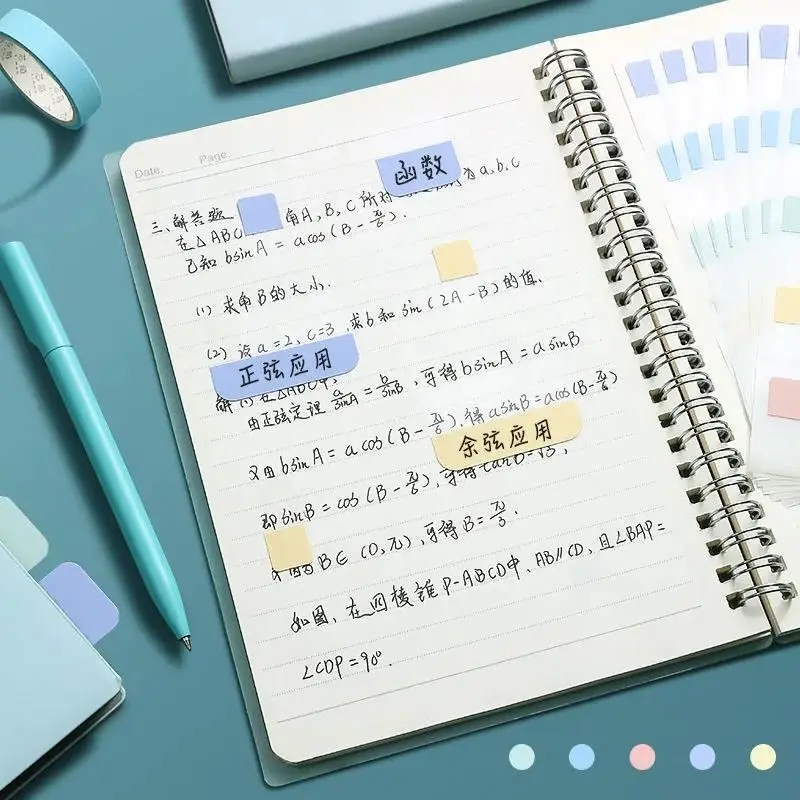 Date. Page.
函数
三、解答题
在△ABC 角A,B,C所对 为a,b,c
已知bsinA=acos(B-π/6).
(1) 求角B的大小.
(2) 设a=2,c=3,求b和sin(2A-B)的值.
正弦应用
在△ABC中,
由正弦定理 a/sinA=b/sinB,可得bsinA=asinB
又由bsinA=acos(B-π/6),得asinB=acos(B-π/6)
余弦应用
即sinB=cos(B-π/6),可得tanB=√3,
B∈(0,π),可得B=π/3.
如图,在四棱锥P-ABCD中,AB//CD,且∠BAP=
∠CDP=90°.